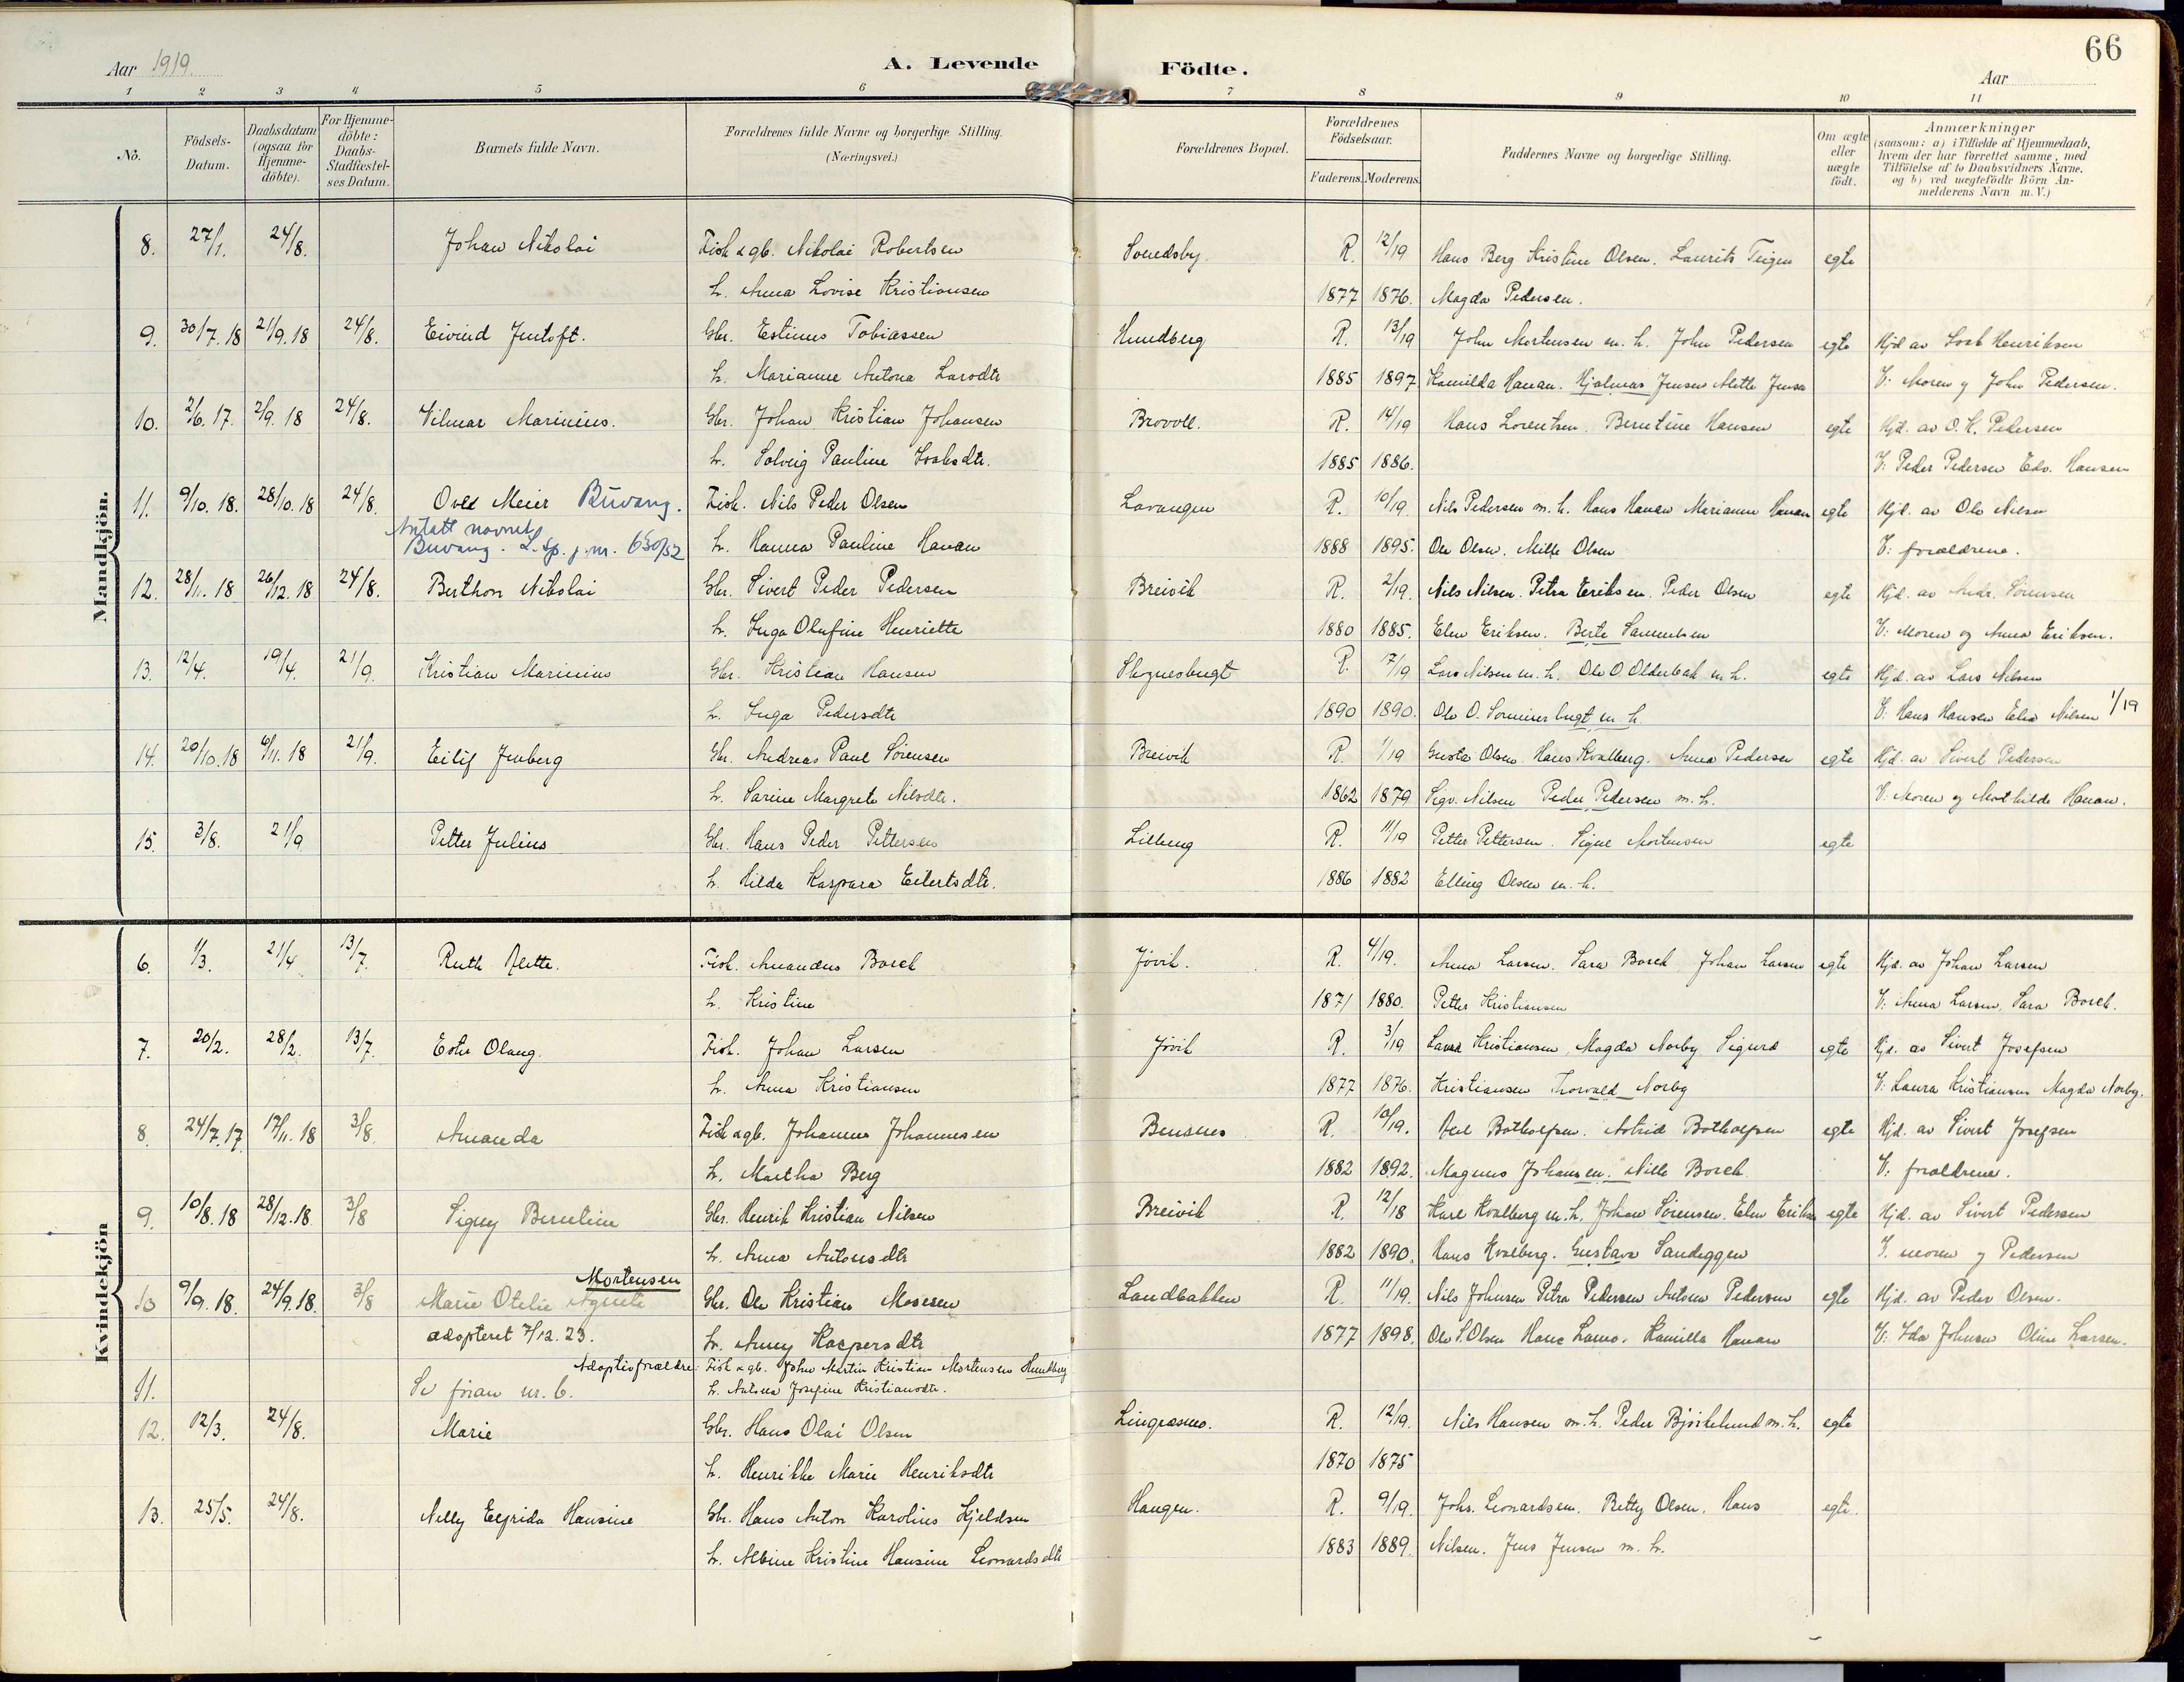 66
Aar 1919.
A. Levende Födte.
Aar
1 2 3 4 5 6 7 8 9 10 11
No.
Födsels-
Datum.
Daabsdatum
(ogsaa for
Hjemme-
döbte).
For Hjemme-
döbte:
Daabs-
Stadfæstel-
ses Datum.
Barnets fulde Navn.
Forældrenes fulde Navne og borgerlige Stilling.
(Næringsvei.)
Forældrenes Bopæl.
Forældrenes
Födselsaar.
Faderens. Moderens.
Faddernes Navne og borgerlige Stilling.
Om ægte
eller
uægte
födt.
Anmærkninger
(saasom: a) i Tilfælde af Hjemmedaab,
hvem der har forrettet samme, med
Tilföielse af to Daabsvidners Navne.
og b) ved uægtefödte Börn An-
melderens Navn m. V.)
Mandkjön.
8. 27/1. 24/8. Johan Nikolai Fisk & gb. Nikolai Robertsen Svendsby. R. 12/19 Hans Berg Kristine Olsen. Laurits Teigen egte
h. Anna Lovise Kristiansen 1877 1876. Magda Pedersen.
9. 30/7.18 21/9.18 24/8. Eivind Jentoft. Gbr. Estinus Tobiassen Hundberg R. 13/19 John Mortensen m. h. John Pedersen egte Hjd av Isak Henriksen
h. Marianne Antona Larsdtr 1885 1897 Kamilda Hanan. Hjalmar Jensen Mette Jensen V: Moren og John Pedersen.
10. 2/6.17. 2/9.18 24/8. Vilmar Marinius. Gbr. Johan Kristian Johansen Brovoll. R. 14/19 Hans Lorentsen. Berntine Hansen egte Hjd. av O. H. Pedersen
h. Solveig Pauline Isaksdtr. 1885 1886. V: Peder Pedersen Edv. Hansen
11. 9/10.18. 28/10.18 24/8. Ovld Meier Buvang. Fisk. Nils Peder Olsen Lavangen R. 10/19 Nils Pedersen m. h. Hans Hanan Marianne Hanan egte Hjd. av Ole Nilsen
Antatt navnet
Buvang. L. sp. j. nr. 650/52 h. Hanna Pauline Hanan 1888 1895. Ole Olsen. Milla Olsen V: forældrene.
12. 28/11.18 26/12.18 24/8. Berthon Nikolai Gbr. Sivert Peder Pedersen Breivik R. 2/19. Nils Nilsen. Petra Eriksen. Peder Olsen egte Hjd. av Andr. Sörensen
h. Inga Olufine Henriette 1880 1885. Elen Eriksen. Berte Samuelsen V: Moren og Anna Eriksen.
13. 12/4. 19/4. 21/9. Kristian Marinius Gbr. Kristian Hansen R. 17/19 Lars Nilsen m. h. Ole O. Olderbak m h. egte Hjd. av Lars Nilsen
h. Inga Pedersdtr 1890 1890. Ole O. Sommerbugt m. h. V: Hans Hansen Elen Nilsen 1/19
14. 20/10.18 6/11.18 21/9. Eilif Jenberg Gbr. Andreas Paul Sörensen Breivik R. 1/19 Gusta Olsen. Hans Kvalberg. Anna Pedersen egte Hjd. av Sivert Pedersen
h. Sarine Margrete Nilsdtr. 1862 1879 Sigv. Nilsen Peder Pedersen m. h. V: Moren og Mathilde Hanan.
15. 3/8. 21/9 Petter Julius Gbr. Hans Peder Pettersen R. 11/19 Petter Pettersen. Signe Mortensen egte
h. Hilda Kaspara Eilertsdtr. 1886 1882 Elling Olsen m. h.
Kvindekjön
6. 1/3. 21/4 13/7. Ruth Fisk. Amandus Borch Jövik. R. 4/19. Anna Larsen. Sara Borch Johan Larsen egte Hjd. av Johan Larsen
h. Kristine 1871 1880. Petter Kristiansen V: Anna Larsen, Sara Borch.
7. 20/2. 28/2. 13/7. Ester Olaug. Fisk. Johan Larsen Jövik R. 3/19 Laura Kristiansen, Magda Norby Sigurd egte Hjd. av Sivert Josefsen
h. Anna Kristiansen 1877 1876. Kristiansen Thorvald Norby V: Laura Kristiansen Magda Norby.
8. 24/7.17 17/11.18 3/8. Amanda Fisk & gb. Johannes Johannesen Bensnes R. 10/19. Axel Botholfsen. Astrid Botholfsen egte Hjd. av Sivert Josefsen
h. Martha Berg 1882 1892. Magnus Johansen. Nille Borch V: forældrene.
9. 10/8.18 28/12.18 3/8 Signy Berntine Gbr. Henrik Kristian Nilsen Breivik R. 12/18 Karl Kvalberg m. h. Johan Sörensen. Elen Eriksen egte Hjd. av Sivert Pedersen
h. Anna Antonsdtr 1882 1890. Hans Kvalberg. Gustava Sandeggen V. moren og Pedersen
Mortensen
10 9/9.18. 24/9.18. 3/8 Marie Otelie Agnete Gbr. Ole Kristian Mosesen Landbakken R. 11/19. Nils Johnsen Petra Pedersen Antson Pedersen egte Hjd. av Peder Olsen.
adopteret 7/12.23. h. Anny Kaspersdtr 1877 1898. Ole S. Olsen Hans Lamo. Kamilla Hanan V: Ida Johnsen Oline Larsen.
Adoptivforældre: Fisk & gb. John Martin Kristian Mortensen Hundberg
11. Se foran nr. 6. h. Antona Josefine Kristiansdtr.
12. 12/3. 24/8. Marie Gbr. Hans Olai Olsen Lingrasmo. R. 12/19. Nils Hansen m. h. Peder Björkelund m. h. egte
h. Henrikke Marie Henriksdtr 1870 1875
13. 25/5. 24/8. Nelly Elfrida Hansine Gbr. Hans Anton Karolius Kjeldsen Haugen. R. 9/19. Johs. Leonardsen. Betty Olsen. Hans egte.
h. Albine Kristine Hansine Leonardsdtr 1883 1889. Nilsen. Jens Jensen m. h.